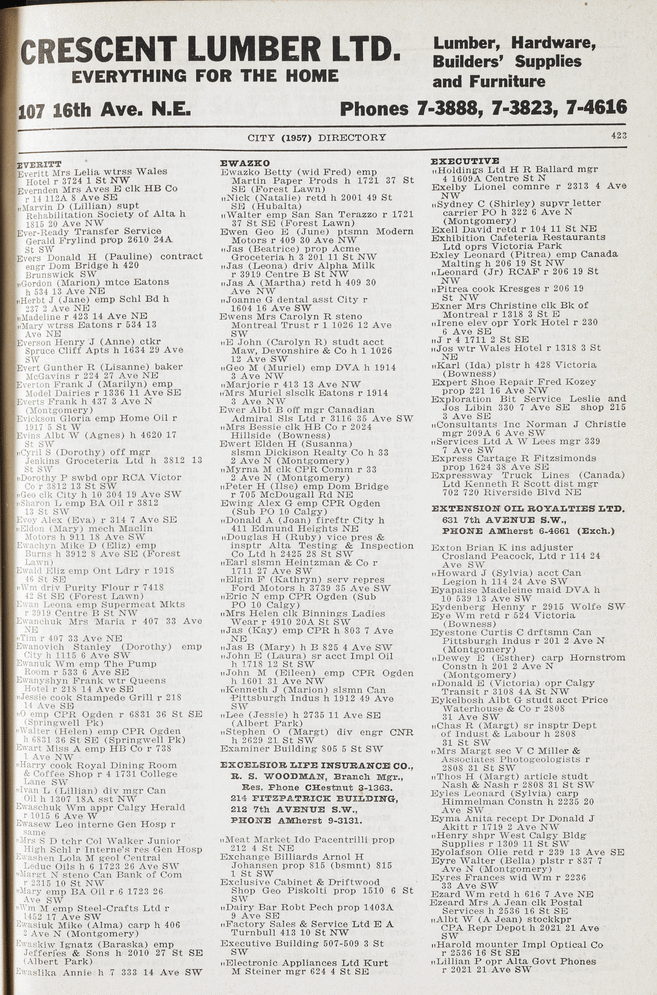 CRESCENT LUMBER LTD.
EVERYTHING FOR THE HOME
Lumber, Hardware,
Builders' Supplies
and Furniture
107 16th Ave. N.E.
Phones 7-3888, 7-3823, 7-4616
CITY (1957) DIRECTORY
423
EVERITT
Everitt Mrs Lelia wtrss Wales
Hotel r 3724 1 St NW
Evernden Mrs Aves E clk HB Co
r 14 112A 8 Ave SE
„Marvin D (Lillian) supt
Rehabilitation Society of Alta h
1815 20 Ave NW
Ever-Ready Transfer Service
Gerald Frylind prop 2610 24A
St SW
Evers Donald H (Pauline) contract
engr Dom Bridge h 420
Brunswick SW
„Gordon (Marion) mtce Eatons
h 534 13 Ave NE
„Herbt J (Jane) emp Schl Bd h
237 2 Ave NE
„Madeline r 423 14 Ave NE
„Mary wtrss Eatons r 534 13
Ave NE
Everson Henry J (Anne) ctkr
Spruce Cliff Apts h 1634 29 Ave
SW
Evert Gunther R (Lisanne) baker
McGavins r 224 27 Ave NE
Everton Frank J (Marilyn) emp
Model Dairies r 1336 11 Ave SE
Everts Frank h 437 3 Ave N
(Montgomery)
Evickson Gloria emp Home Oil r
1917 5 St W
Evins Albt W (Agnes) h 4620 17
St SW
„Cyril S (Dorothy) off mgr
Jenkins Groceteria Ltd h 3812 13
St SW
„Dorothy P swbd opr RCA Victor
Co r 3812 13 St SW
„Geo clk City h 10 304 19 Ave SW
„Sharon L emp BA Oil r 3812
13 St SW
Evoy Alex (Eva) r 314 7 Ave SE
„Eldon (Mary) mech Maclin
Motors h 911 18 Ave SW
Ewachyn Mike D (Eliz) emp
Burns h 3912 8 Ave SE (Forest
Lawn)
Ewald Eliz emp Ont Ldry r 1918
46 St SE
„Wm driv Purity Flour r 7418
42 St SE (Forest Lawn)
Ewan Leona emp Supermeat Mkts
r 3919 Centre B St NW
Ewanchuk Mrs Maria r 407 33 Ave
NE
„Tim r 407 33 Ave NE
Ewanovich Stanley (Dorothy) emp
City h 1115 6 Ave SW
Ewanuk Wm emp The Pump
Room r 533 6 Ave SE
Ewanyshyn Frank wtr Queens
Hotel r 218 14 Ave SE
„Jessie cook Stampede Grill r 218
14 Ave SE
„O emp CPR Ogden r 6831 36 St SE
(Springwell Pk)
„Walter (Helen) emp CPR Ogden
h 6831 36 St SE (Springwell Pk)
Ewart Miss A emp HB Co r 738
1 Ave NW
„Harry cook Royal Dining Room
& Coffee Shop r 4 1731 College
Lane SW
„Ivan L (Lillian) div mgr Can
Oil h 1307 18A sst NW
Ewaschuk Wm appr Calgy Herald
r 1015 6 Ave W
Ewasew Leo interne Gen Hosp r
same
„Mrs S D tchr Col Walker Junior
High Schl r Interne's res Gen Hosp
Ewashen Lola M geol Central
Leduc Oils h 6 1723 26 Ave SW
„Margt N steno Can Bank of Com
r 2315 10 St NW
„Mary emp BA Oil r 6 1723 26
Ave SW
„Wm M emp Steel-Crafts Ltd r
1452 17 Ave SW
Ewasiuk Mike (Alma) carp h 406
2 Ave N (Montgomery)
Ewaskiw Ignatz (Baraska) emp
Jefferies & Sons h 2010 27 St SE
(Albert Park)
Ewaslika Annie h 7 333 14 Ave SW
EWAZKO
Ewazko Betty (wid Fred) emp
Martin Paper Prods h 1721 37 St
SE (Forest Lawn)
„Nick (Natalie) retd h 2001 49 St
SE (Hubalta)
„Walter emp San San Terazzo r 1721
37 St SE (Forest Lawn)
Ewen Geo E (June) ptsmn Modern
Motors r 409 30 Ave NW
„Jas (Beatrice) prop Acme
Groceteria h 3 201 11 St NW
„Jas (Leona) driv Alpha Milk
r 3919 Centre B St NW
„Jas A (Martha) retd h 409 30
Ave NW
„Joanne G dental asst City r
1604 16 Ave SW
Ewens Mrs Carolyn R steno
Montreal Trust r 1 1026 12 Ave
SW
„E John (Carolyn R) studt acct
Maw, Devonshire & Co h 1 1026
12 Ave SW
„Geo M (Muriel) emp DVA h 1914
3 Ave NW
„Marjorie r 413 13 Ave NW
„Mrs Muriel slsclk Eatons r 1914
3 Ave NW
Ewer Albt B off mgr Canadian
Admiral Sls Ltd r 3116 35 Ave SW
„Mrs Bessie clk HB Co r 2024
Hillside (Bowness)
Ewert Elden H (Susanna)
slsmn Dickison Realty Co h 33
2 Ave N (Montgomery)
„Myrna M clk CPR Comm r 33
2 Ave N (Montgomery)
„Peter H (Ilse) emp Dom Bridge
r 705 McDougall Rd NE
Ewing Alex G emp CPR Ogden
(Sub PO 10 Calgy)
„Donald A (Joan) fireftr City h
411 Edmund Heights NE
„Douglas H (Ruby) vice pres &
insptr Alta Testing & Inspection
Co Ltd h 2425 28 St SW
„Earl slsmn Heintzman & Co r
1711 27 Ave SW
„Elgin F (Kathryn) serv repres
Ford Motors h 3739 35 Ave SW
„Eric N emp CPR Ogden (Sub
PO 10 Calgy)
„Mrs Helen clk Binnings Ladies
Wear r 4910 20A St SW
„Jas (Kay) emp CPR h 803 7 Ave
NE
„Jas B (Mary) h B 825 4 Ave SW
„John E (Laura) sr acct Impl Oil
h 1718 12 St SW
„John M (Eileen) emp CPR Ogden
h 1601 31 Ave NW
„Kenneth J (Marion) slsmn Can
Pittsburgh Indus h 1912 49 Ave
SW
„Lee (Jessie) h 2735 11 Ave SE
(Albert Park)
„Stephen O (Margt) div engr CNR
h 2629 21 St SW
Examiner Building 805 5 St SW
EXCELSIOR LIFE INSURANCE CO.,
R. S. WOODMAN, Branch Mgr.,
Res. Phone CHestnut 3-1363.
214 FITZPATRICK BUILDING,
212 7th AVENUE S.W.,
PHONE AMherst 9-3131.
„Meat Market Ido Pacentrilli prop
212 4 St NE
Exchange Billiards Arnol H
Johansen prop 815 (bsmnt) 815
1 St SW
Exclusive Cabinet & Driftwood
Shop Geo Piskolti prop 1510 6 St
SW
„Dairy Bar Robt Pech prop 1403A
9 Ave SE
„Factory Sales & Service Ltd E A
Turnbull 413 10 St NW
Executive Building 507-509 3 St
SW
„Electronic Appliances Ltd Kurt
M Steiner mgr 624 4 St SE
EXECUTIVE
„Holdings Ltd H R Ballard mgr
4 1609A Centre St N
Exelby Lionel comnre r 2313 4 Ave
NW
„Sydney C (Shirley) supvr letter
carrier PO h 322 6 Ave N
(Montgomery)
Exell David retd r 104 11 St NE
Exhibition Cafeteria Restaurants
Ltd oprs Victoria Park
Exley Leonard (Pitrea) emp Canada
Malting h 206 19 St NW
„Leonard (Jr) RCAF r 206 19 St
NW
„Pitrea cook Kresges r 206 19
St NW
Exner Mrs Christine clk Bk of
Montreal r 1318 3 St E
„Irene elev opr York Hotel r 230
6 Ave SE
„J r 4 1711 2 St SE
„Jos wtr Wales Hotel r 1318 3 St
NE
„Karl (Ida) plstr h 428 Victoria
(Bowness)
Expert Shoe Repair Fred Kozey
prop 221 16 Ave NW
Exploration Bit Service Leslie and
Jos Libin 330 7 Ave SE shop 215
3 Ave SE
„Consultants Inc Norman J Christie
mgr 209A 6 Ave SW
„Services Ltd A W Lees mgr 339
7 Ave SW
Express Cartage R Fitzsimonds
prop 1624 38 Ave SE
Expressway Truck Lines (Canada)
Ltd Kenneth E Scott dist mgr
702 720 Riverside Blvd NE
EXTENSION OIL ROYALTIES LTD.
631 7th AVENUE S.W.,
PHONE AMherst 6-4661 (Exch.)
Exton Brian K ins adjuster
Crosland Peacock, Ltd r 114 24
Ave SW
„Howard J (Sylvia) acct Can
Legion h 114 24 Ave SW
Eyapaise Madeleine maid DVA h
10 539 13 Ave SW
Eydenberg Henny r 2915 Wolfe SW
Eye Wm retd r 524 Victoria
(Bowness)
Eyestone Curtis C drftsmn Can
Pittsburgh Indus r 201 2 Ave N
(Montgomery)
„Dewey E (Esther) carp Hornstrom
Constn h 201 2 Ave N
(Montgomery)
„Donald E (Victoria) opr Calgy
Transit r 3108 4A St NW
Eykelbosh Albt G studt acct Price
Waterhouse & Co r 2808
31 Ave SW
„Chas R (Margt) sr insptr Dept
of Indust & Labour h 2808
31 St SW
„Mrs Margt sec V C Miller &
Associates Photogeologists r
2808 31 St SW
„Thos H (Margt) article studt
Nash & Nash r 2808 31 St SW
Eyles Leonard (Sylvia) carp
Himmelman Constn h 2235 20
Ave SW
Eyma Anita recept Dr Donald J
Akitt r 1719 2 Ave NW
„Henry shpr West Calgy Bldg
Supplies r 1309 11 St SW
Eyolafson Olie retd r 239 13 Ave SE
Eyre Walter (Bella) plstr r 837 7
Ave N (Montgomery)
Eyres Frances wid Wm r 2236
33 Ave SW
Ezard Wm retd h 616 7 Ave NE
Ezeard Mrs A Jean clk Postal
Services h 2536 16 St SE
„Albt W (A Jean) stockkpr
CPA Repr Depot h 2021 21 Ave
SW
„Harold mounter Impl Optical Co
r 2536 16 St SE
„Lillian P opr Alta Govt Phones
r 2021 21 Ave SW